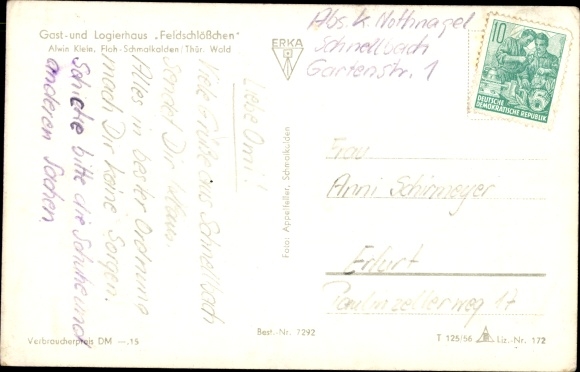 Gast- und Logierhaus „Feldschlößchen"
Alwin Klein, Floh-Schmalkalden/Thür. Wald
ERKA
Abs. K. Nothnagel
Schnellbach
Gartenstr. 1
10
DEUTSCHE
DEMOKRATISCHE REPUBLIK
5
Liebe Omi!
Viele Grüße aus Schnellbach
sendet Dir Klaus.
Alles in bester Ordnung
mach Dir keine Sorgen.
Schicke bitte die Schuhe und
anderen Sachen
Foto: Appelfeller, Schmalkalden
Frau
Anni Schirmeyer
Erfurt
Paulinzellerweg 17
Verbraucherpreis DM —,15
Best.-Nr. 7292
T 125/56
Liz.-Nr. 172